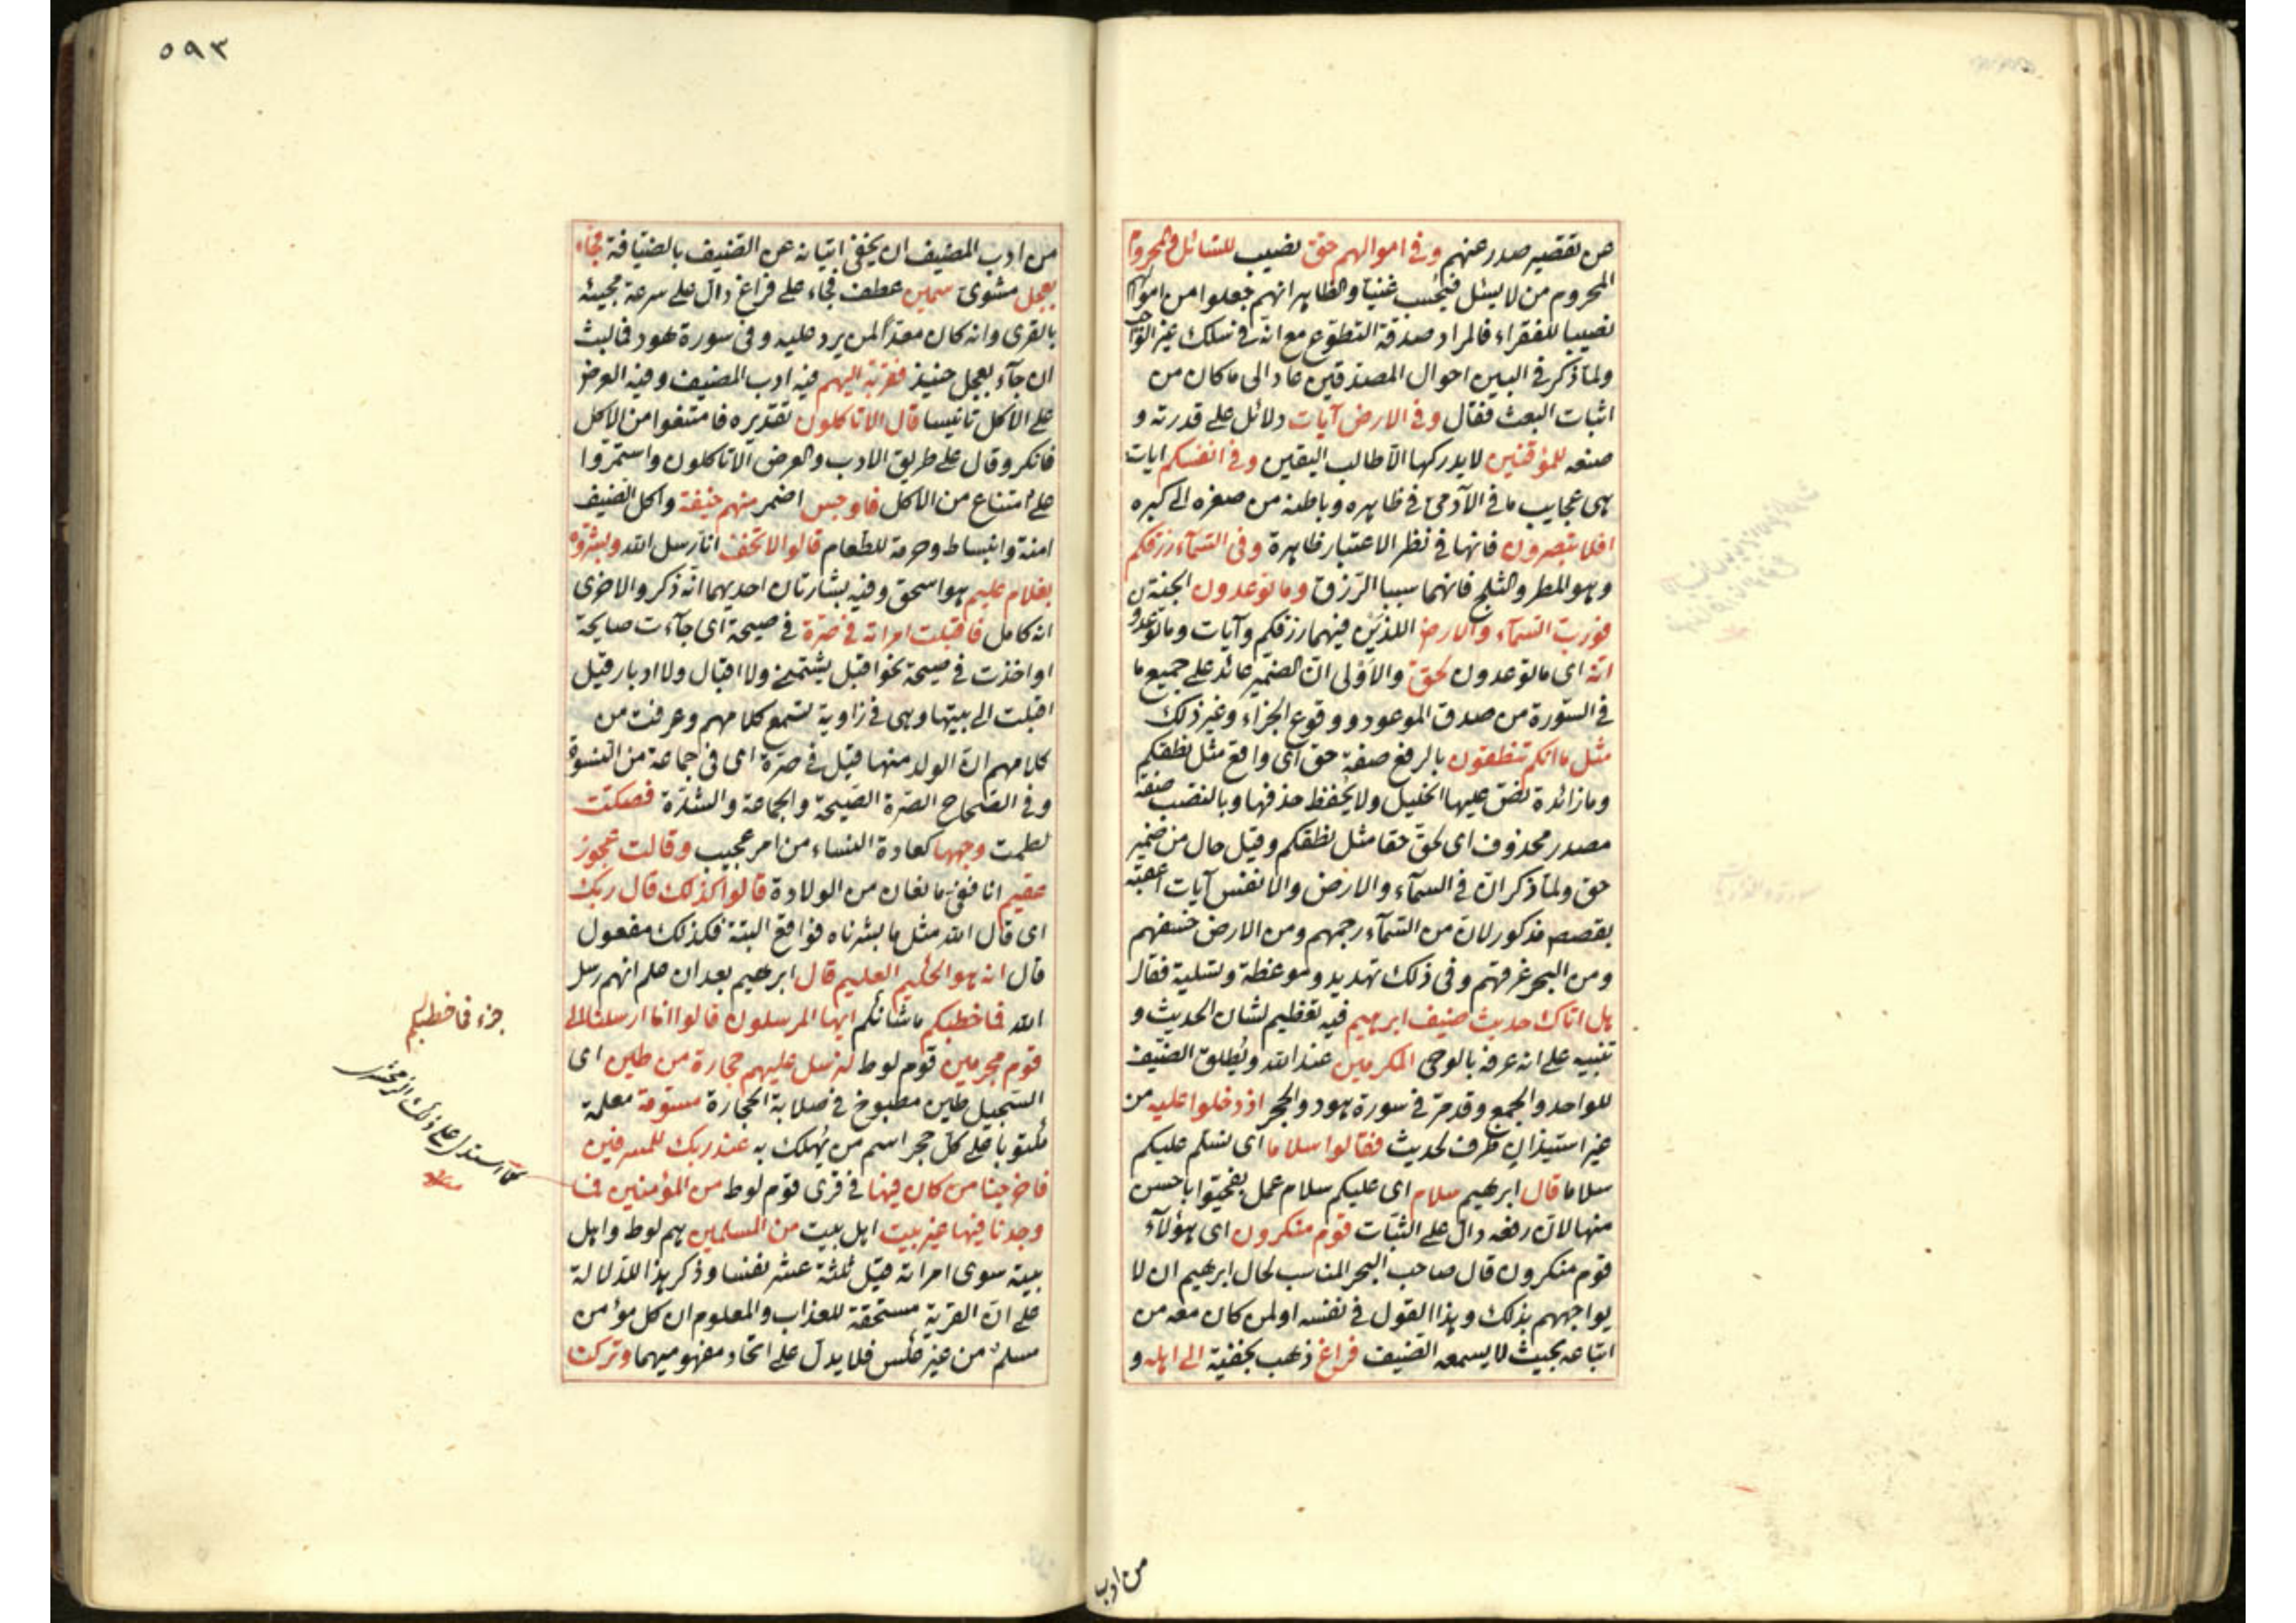 عن تقصير صدر عنهم وفى اموالهم حق نصيب للسائل والمحروم
المحروم من لا يسئل فيحسب غنيا والظاهر انهم جعلوا من اموالهم
نصيبا للفقراء فالمراد صدقة التطوع مع انه فى سلك غير الواجب
ولما ذكر فى البين احوال المصدقين عاد الى ما كان من
اثبات البعث فقال وفى الارض آيات دلائل على قدرته و
صنعه للموقنين لا يدركها الا طالب اليقين وفى انفسكم ايات
هى عجايب ما فى الآدمى فى ظاهره وباطنه من صغره الى كبره
افلا تبصرون فانها فى نظر الاعتبار ظاهرة وفى السمآء رزقكم
وهو المطر والثلج فانهما سببا الرزق وما توعدون الجنة
فورب السمآء والارض اللذين فيهما رزقكم وآيات وما توعدون
انه اى ما توعدون لحق والاولى ان الضمير عائد على جميع ما
فى السورة من صدق الموعود ووقوع الجزاء وغير ذلك
مثل ما انكم تنطقون بالرفع صفة حق اى واقع مثل نطقكم
وما زائدة نص عليها الخليل ولا يحفظ حذفها وبالنصب صفة
مصدر محذوف اى لحق حقا مثل نطقكم وقيل حال من ضمير
حق ولما ذكر ان فى السمآء والارض والانفس آيات اعقبه
بقصص مذكور لان من السمآء رجمهم ومن الارض خسفهم
ومن البحر غرقتهم وفى ذلك تهديد وموعظة وتسلية فقال
هل اتاك حديث ضيف ابرهيم فيه تعظيم لشان الحديث و
تنبيه على انه عرفه بالوحى المكرمين عند الله ويطلق الضيف
للواحد والجمع وقد مر فى سورة هود والحجر اذ دخلوا عليه من
غير استيذان ظرف لحديث فقالوا سلاما اى نسلم عليكم
سلاما قال ابرهيم سلام اى عليكم سلام عمل بفحيوا باحسن
منها لان رفعه دال على الثبات قوم منكرون اى هؤلآء
قوم منكرون قال صاحب البحر المناسب لحال ابرهيم ان لا
يواجههم بذلك وهذا القول فى نفسه او لمن كان معه من
اتباعه بحيث لا يسمعه الضيف فراغ ذهب بخفية الى اهله و
من ادب
٥٩٣
من ادب المضيف ان يخفى اتيانه عن الضيف بالضيافة فجاء
بعجل مشوى سمين عطف فجاء على فراغ دال على سرعة مجيئه
بالقرى وانه كان معدا لمن يرد عليه وفى سورة هود فما لبث
ان جآء بعجل حنيذ فقربه اليهم فيه ادب المضيف وفيه العرض
على الاكل تانيسا قال الا تاكلون تقديره فامتنعوا من الاكل
فانكر وقال على طريق الادب والعرض الا تاكلون واستمروا
على امتناع من الاكل فاوجس اضمر منهم خيفة واكل الضيف
امنة وانبساط وحرمة للطعام قالوا لا تخف انا رسل الله وبشروه
بغلام عليم هو اسحق وفيه بشارتان احديهما انه ذكر والاخرى
انه كامل فاقبلت امراته فى صرة فى صيحة اى جآءت صايحة
او اخذت فى صيحة نحو اقبل يشتمنى ولا اقبال ولا ادبار قيل
اقبلت الى بيتها وهى فى زاوية تسمع كلامهم وعرفت من
كلامهم ان الولد منها قيل فى صرة اى فى جماعة من النسوة
وفى الصحاح الصرة الصيحة والجماعة والشدة فصكت
لطمت وجهها كعادة النساء من امر عجيب وقالت عجوز
عقيم انا ففى مانعان من الولادة قالوا كذلك قال ربك
اى قال الله مثل ما بشرناه فواقع البتة فكذلك مفعول
قال انه هو الحكيم العليم قال ابرهيم بعد ان علم انهم رسل
الله فما خطبكم ما شانكم ايها المرسلون قالوا انا ارسلنا الى
قوم مجرمين قوم لوط لنرسل عليهم حجارة من طين اى
السجيل طين مطبوخ فى صلابة الحجارة مسومة معلمة
مكتوبا على كل حجر اسم من يهلك به عند ربك للمسرفين
فاخرجنا من كان فيها فى قرى قوم لوط من المؤمنين فما
وجدنا فيها غير بيت اهل بيت من المسلمين هم لوط واهل
بيته سوى امراته قيل ثلثة عشر نفسا وذكر هذا للدلالة
على ان القرية مستحقة للعذاب والمعلوم ان كل مؤمن
مسلم من غير عكس فلا يدل على اتحاد مفهوميهما وتركنا
جزء فما خطبكم
كما استدل على ذلك الزمخشرى